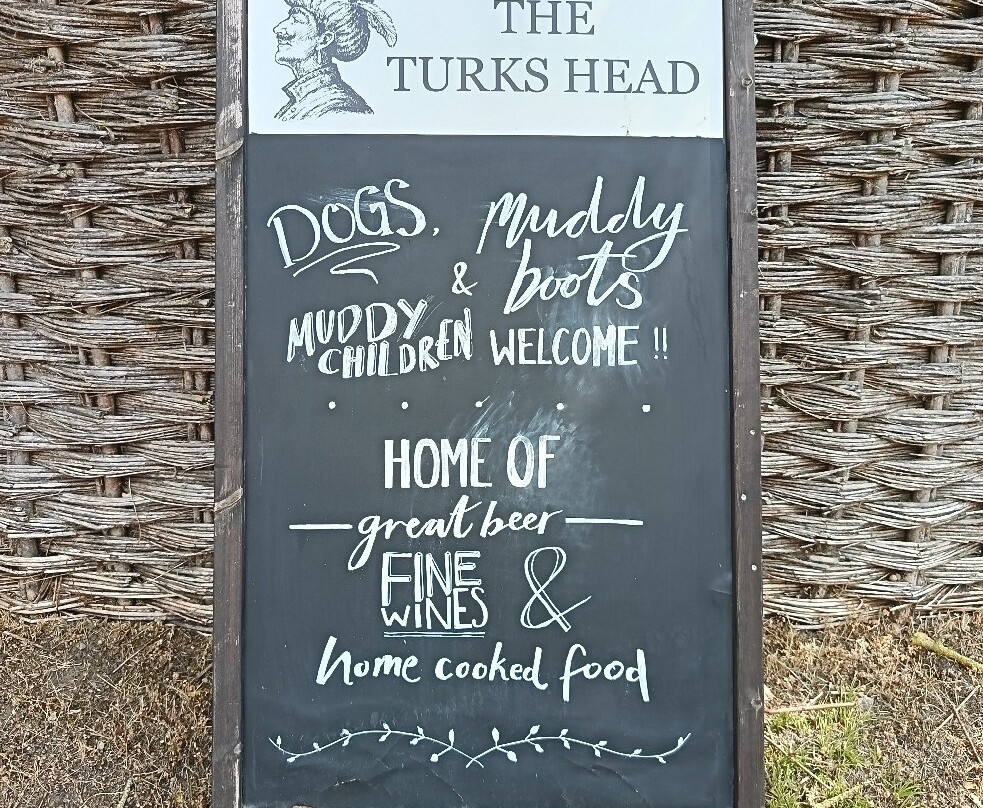 THE
TURKS HEAD
DOGS, Muddy
& boots
MUDDY
CHILDREN WELCOME !!
HOME OF
great beer
FINE
WINES &
home cooked food